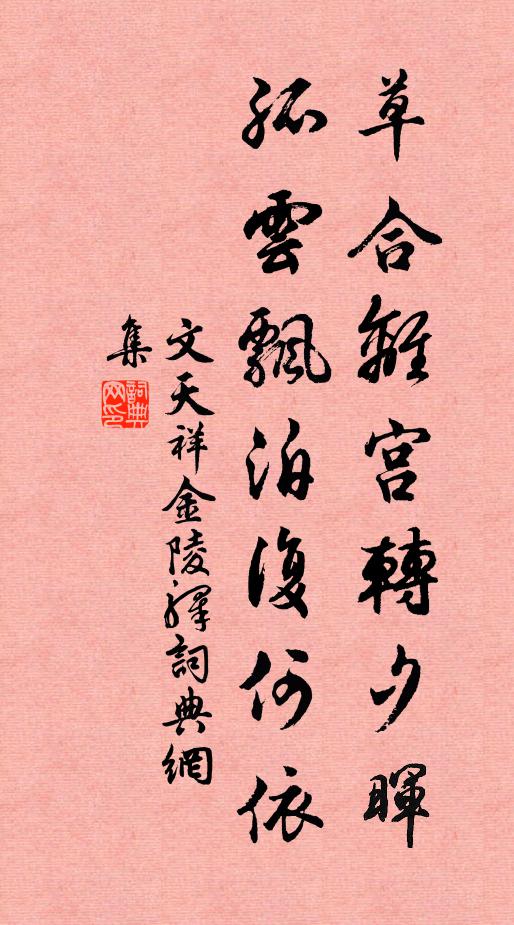 草合離宮轉夕暉
孤雲飄泊復何依
文天祥金陵驛詞典網
集
詞典網印